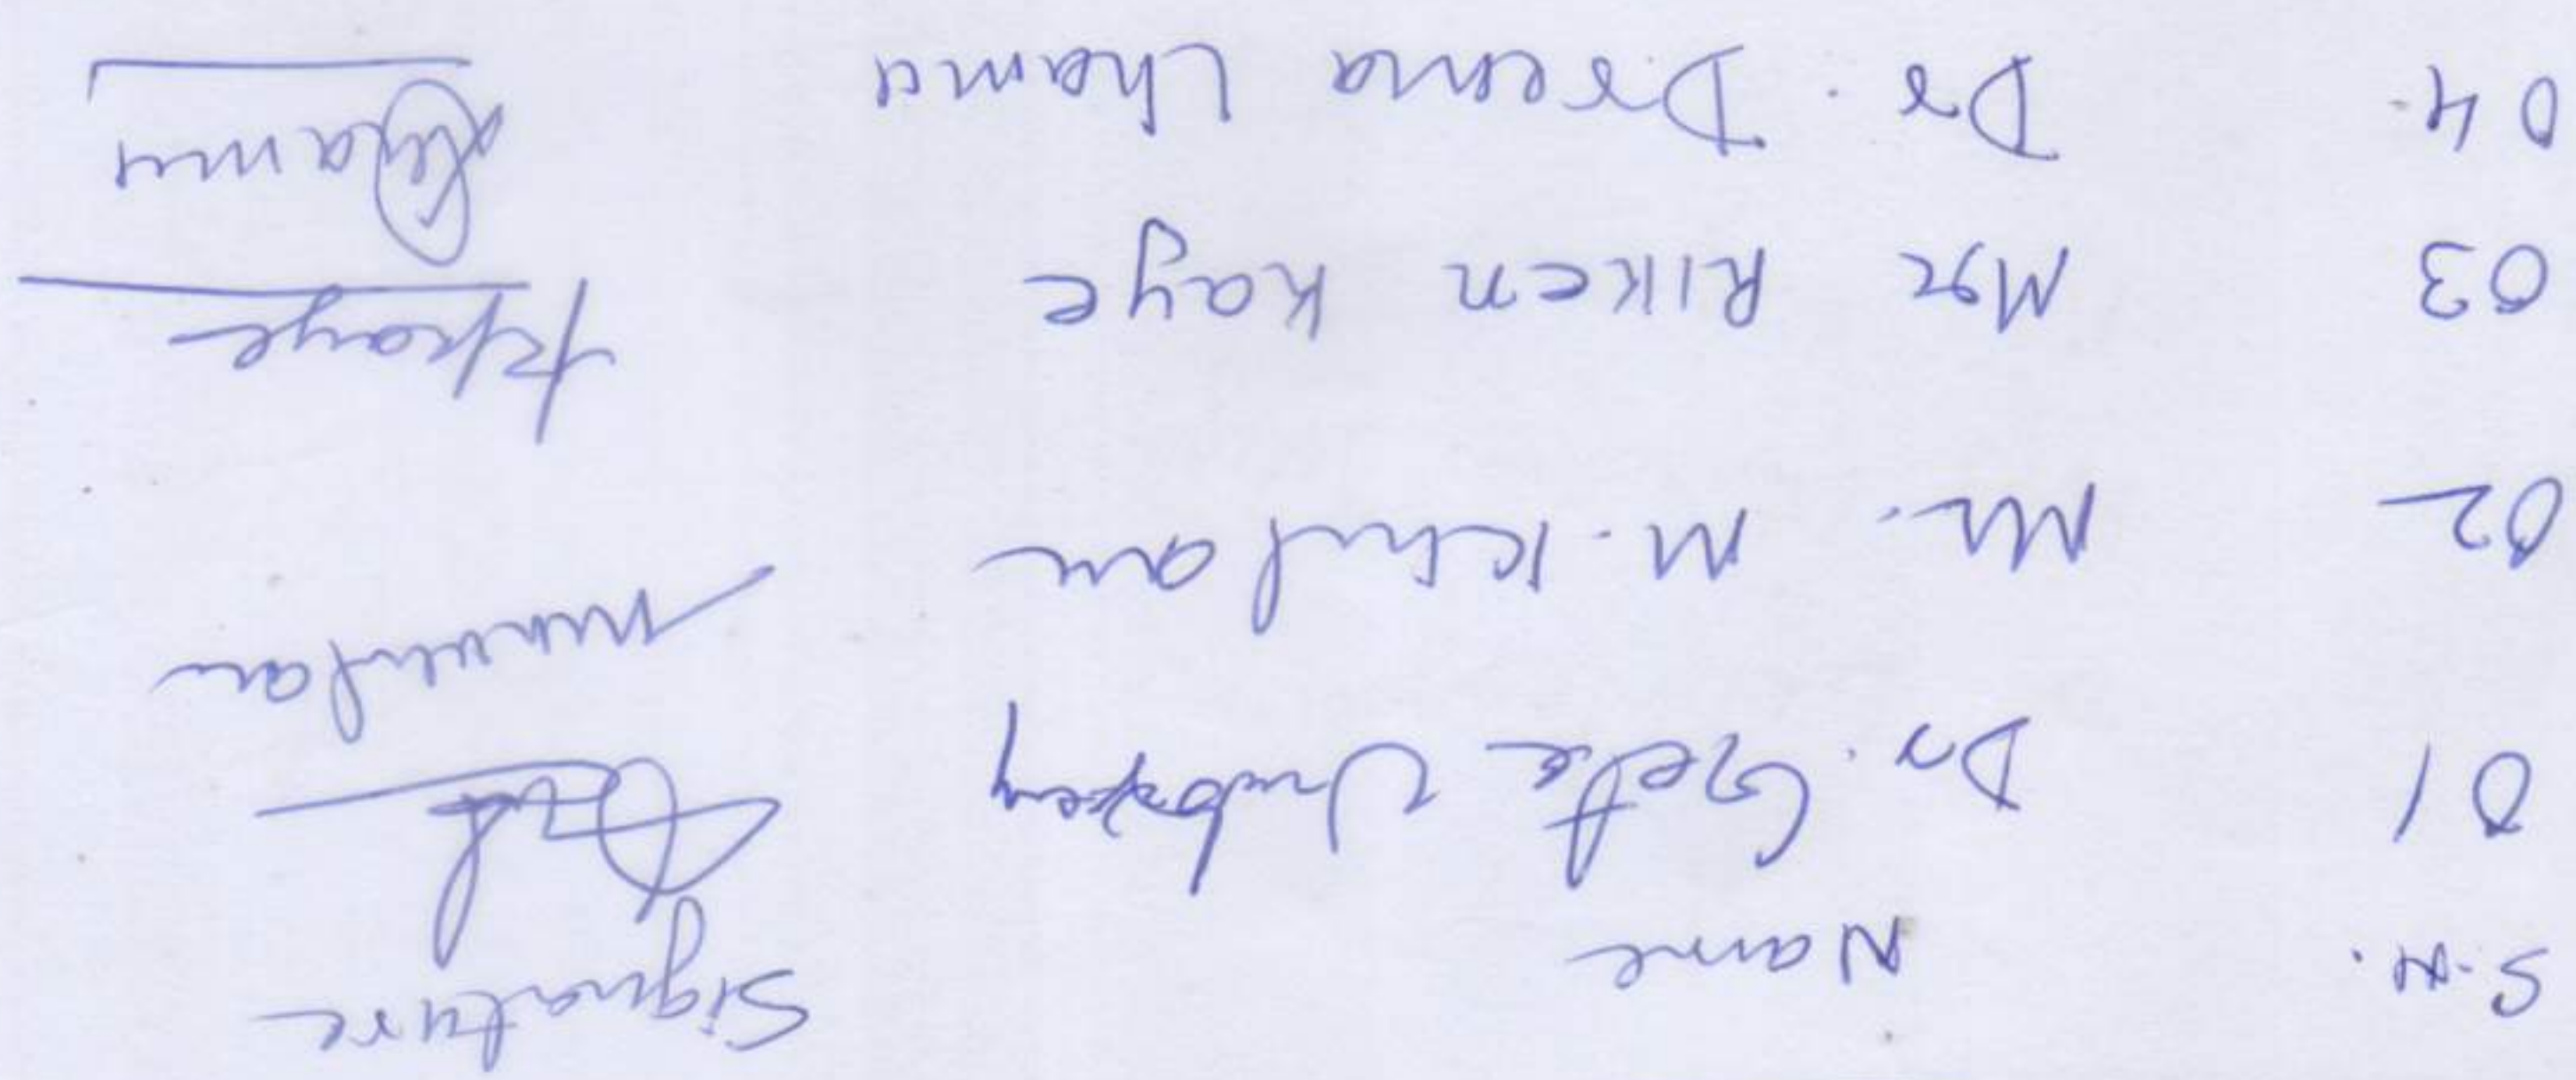 S.N. Name Signature
01 Dr. Geeta
02 Mr. M. Khulam
03 Mr Riken Kaye RKaye
04. Dr. Drema Lhamu Lhamu